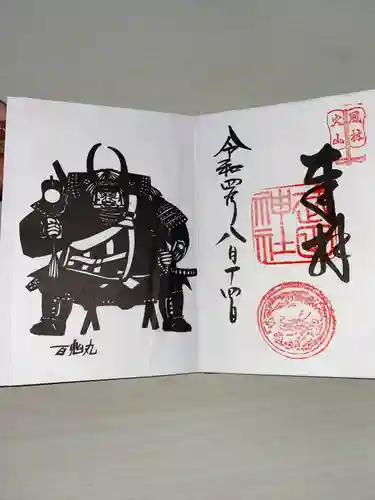 風林
火山
奉拝
武田
神社
令和四年八月十四日
百鬼丸